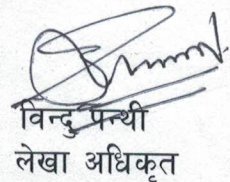 विन्दु पन्थी
लेखा अधिकृत